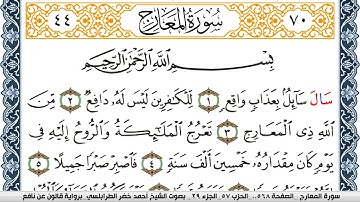 ٧٠ سُورَةُ الْمَعَارِجِ ٤٤
بِسْمِ اللَّهِ الرَّحْمَٰنِ الرَّحِيمِ
سَالَ سَآئِلُۢ بِعَذَابٖ وَاقِعٖ ١ لِّلْكَٰفِرِينَ لَيْسَ لَهُۥ دَافِعٞ ٢ مِّنَ
اَ۬للَّهِ ذِے اِ۬لْمَعَارِجِ ٣ تَعْرُجُ اُ۬لْمَلَٰٓئِكَةُ وَالرُّوحُ إِلَيْهِ فِے
يَوْمٖ كَانَ مِقْدَارُهُۥ خَمْسِينَ أَلْفَ سَنَةٖ ٤ فَاصْبِرْ صَبْراٗ جَمِيلاً ٥
سورة المعارج .. الصفحة ٥٦٨ .. الحزب ٥٧ الجزء ٢٩ .. بصوت الشيخ أحمد خضر الطرابلسي .. برواية قالون عن نافع